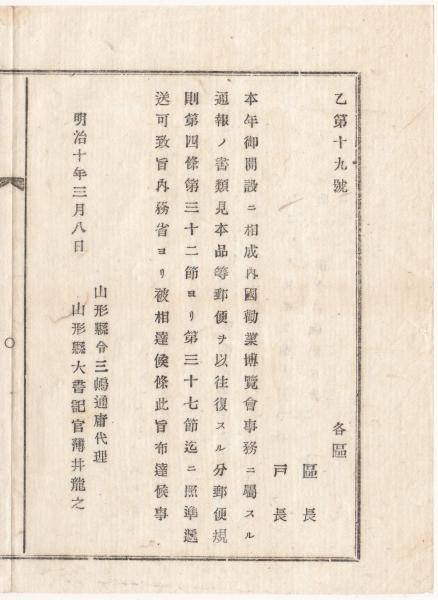 乙第十九號
各區
區長
戸長
本年御開設ニ相成內國勸業博覽會事務ニ屬スル
通報ノ書類見本品等郵便ヲ以往復スル分郵便規
則第四條第三十二節ヨリ第三十七節迄ニ照準遞
送可致旨內務省ヨリ被相達候條此旨布達候事
明治十年三月八日
山形縣令三島通庸代理
山形縣大書記官薄井龍之